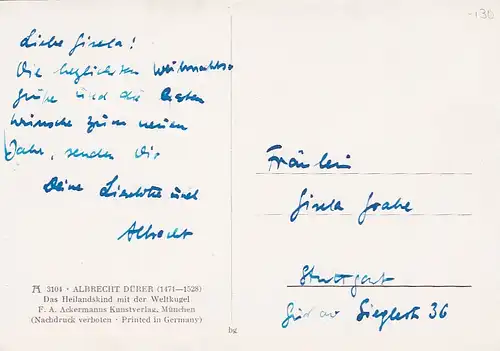 -130
Liebe Gisela!
Die herzlichsten Weihnachts-
grüße und die besten
Wünsche zum neuen
Jahr, senden Dir
Deine Liselotte und
Albrecht
Fräulein
Gisela
Stuttgart
Sieglestr 36
3104 · ALBRECHT DÜRER (1471—1528)
Das Heilandskind mit der Weltkugel
F. A. Ackermanns Kunstverlag, München
(Nachdruck verboten · Printed in Germany)
bg